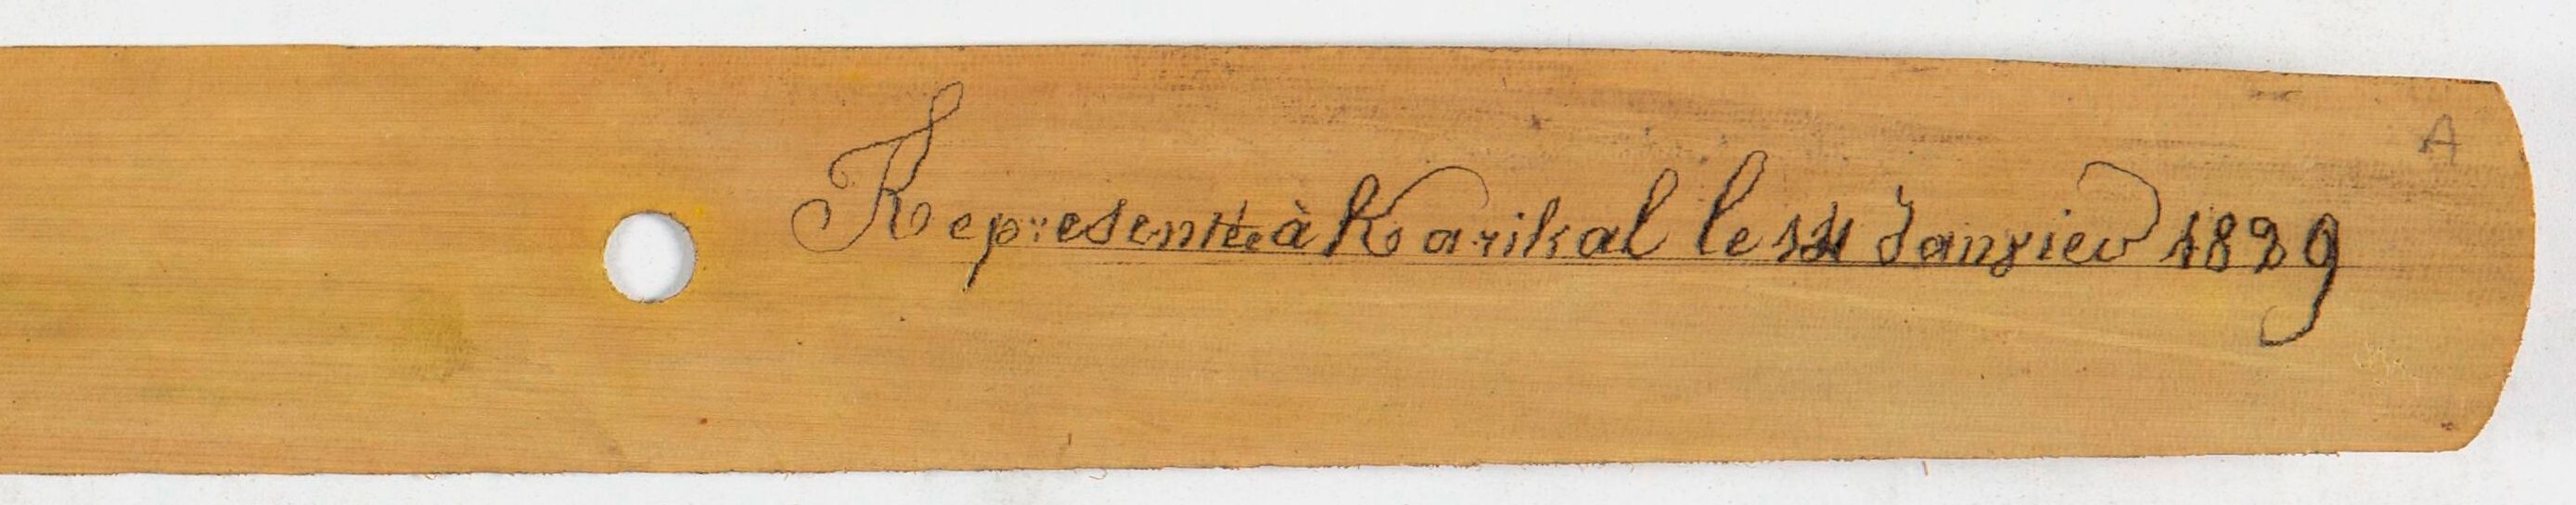 A
Representée à Karikal le 14 Janvier 1839